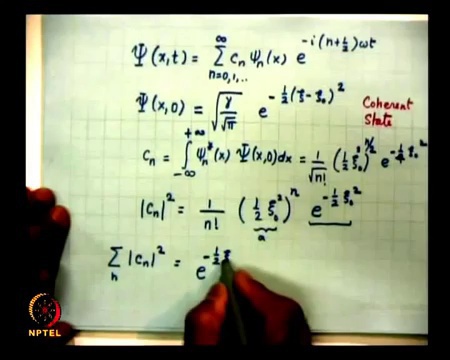 Ψ(x,t) = ∑_{n=0,1,..}^{∞} c_n ψ_n(x) e^{-i(n+½)ωt}
Ψ(x,0) = √(γ/√π) e^{-½(ξ-ξ₀)²}
Coherent
State
c_n = ∫_{-∞}^{+∞} ψ_n^*(x) Ψ(x,0)dx = 1/√n! (½ξ₀²)^{n/2} e^{-¼ξ₀²}
|c_n|² = 1/n! (½ξ₀²)^n e^{-½ξ₀²}
a
∑_n |c_n|² = e^{-½ξ
NPTEL